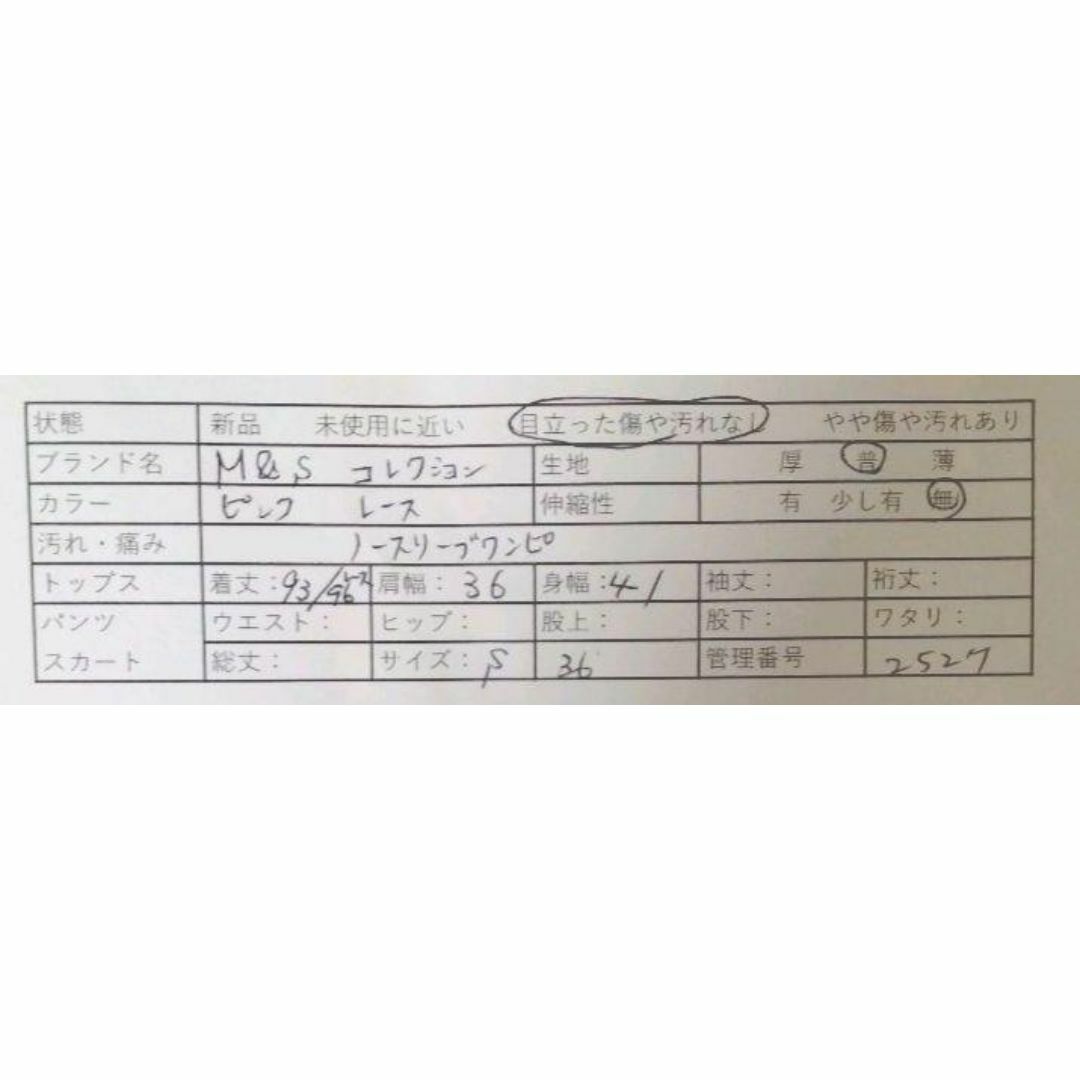 状態 新品 未使用に近い 目立った傷や汚れなし やや傷や汚れあり
ブランド名 M&S コレクション 生地 厚 普 薄
カラー ピンク レース 伸縮性 有 少し有 無
汚れ・痛み ノースリーブワンピ
トップス 着丈:93/ 肩幅: 36 身幅:41 袖丈: 裄丈:
パンツ ウエスト: ヒップ: 股上: 股下: ワタリ:
スカート 総丈: サイズ: S 36 管理番号 2527